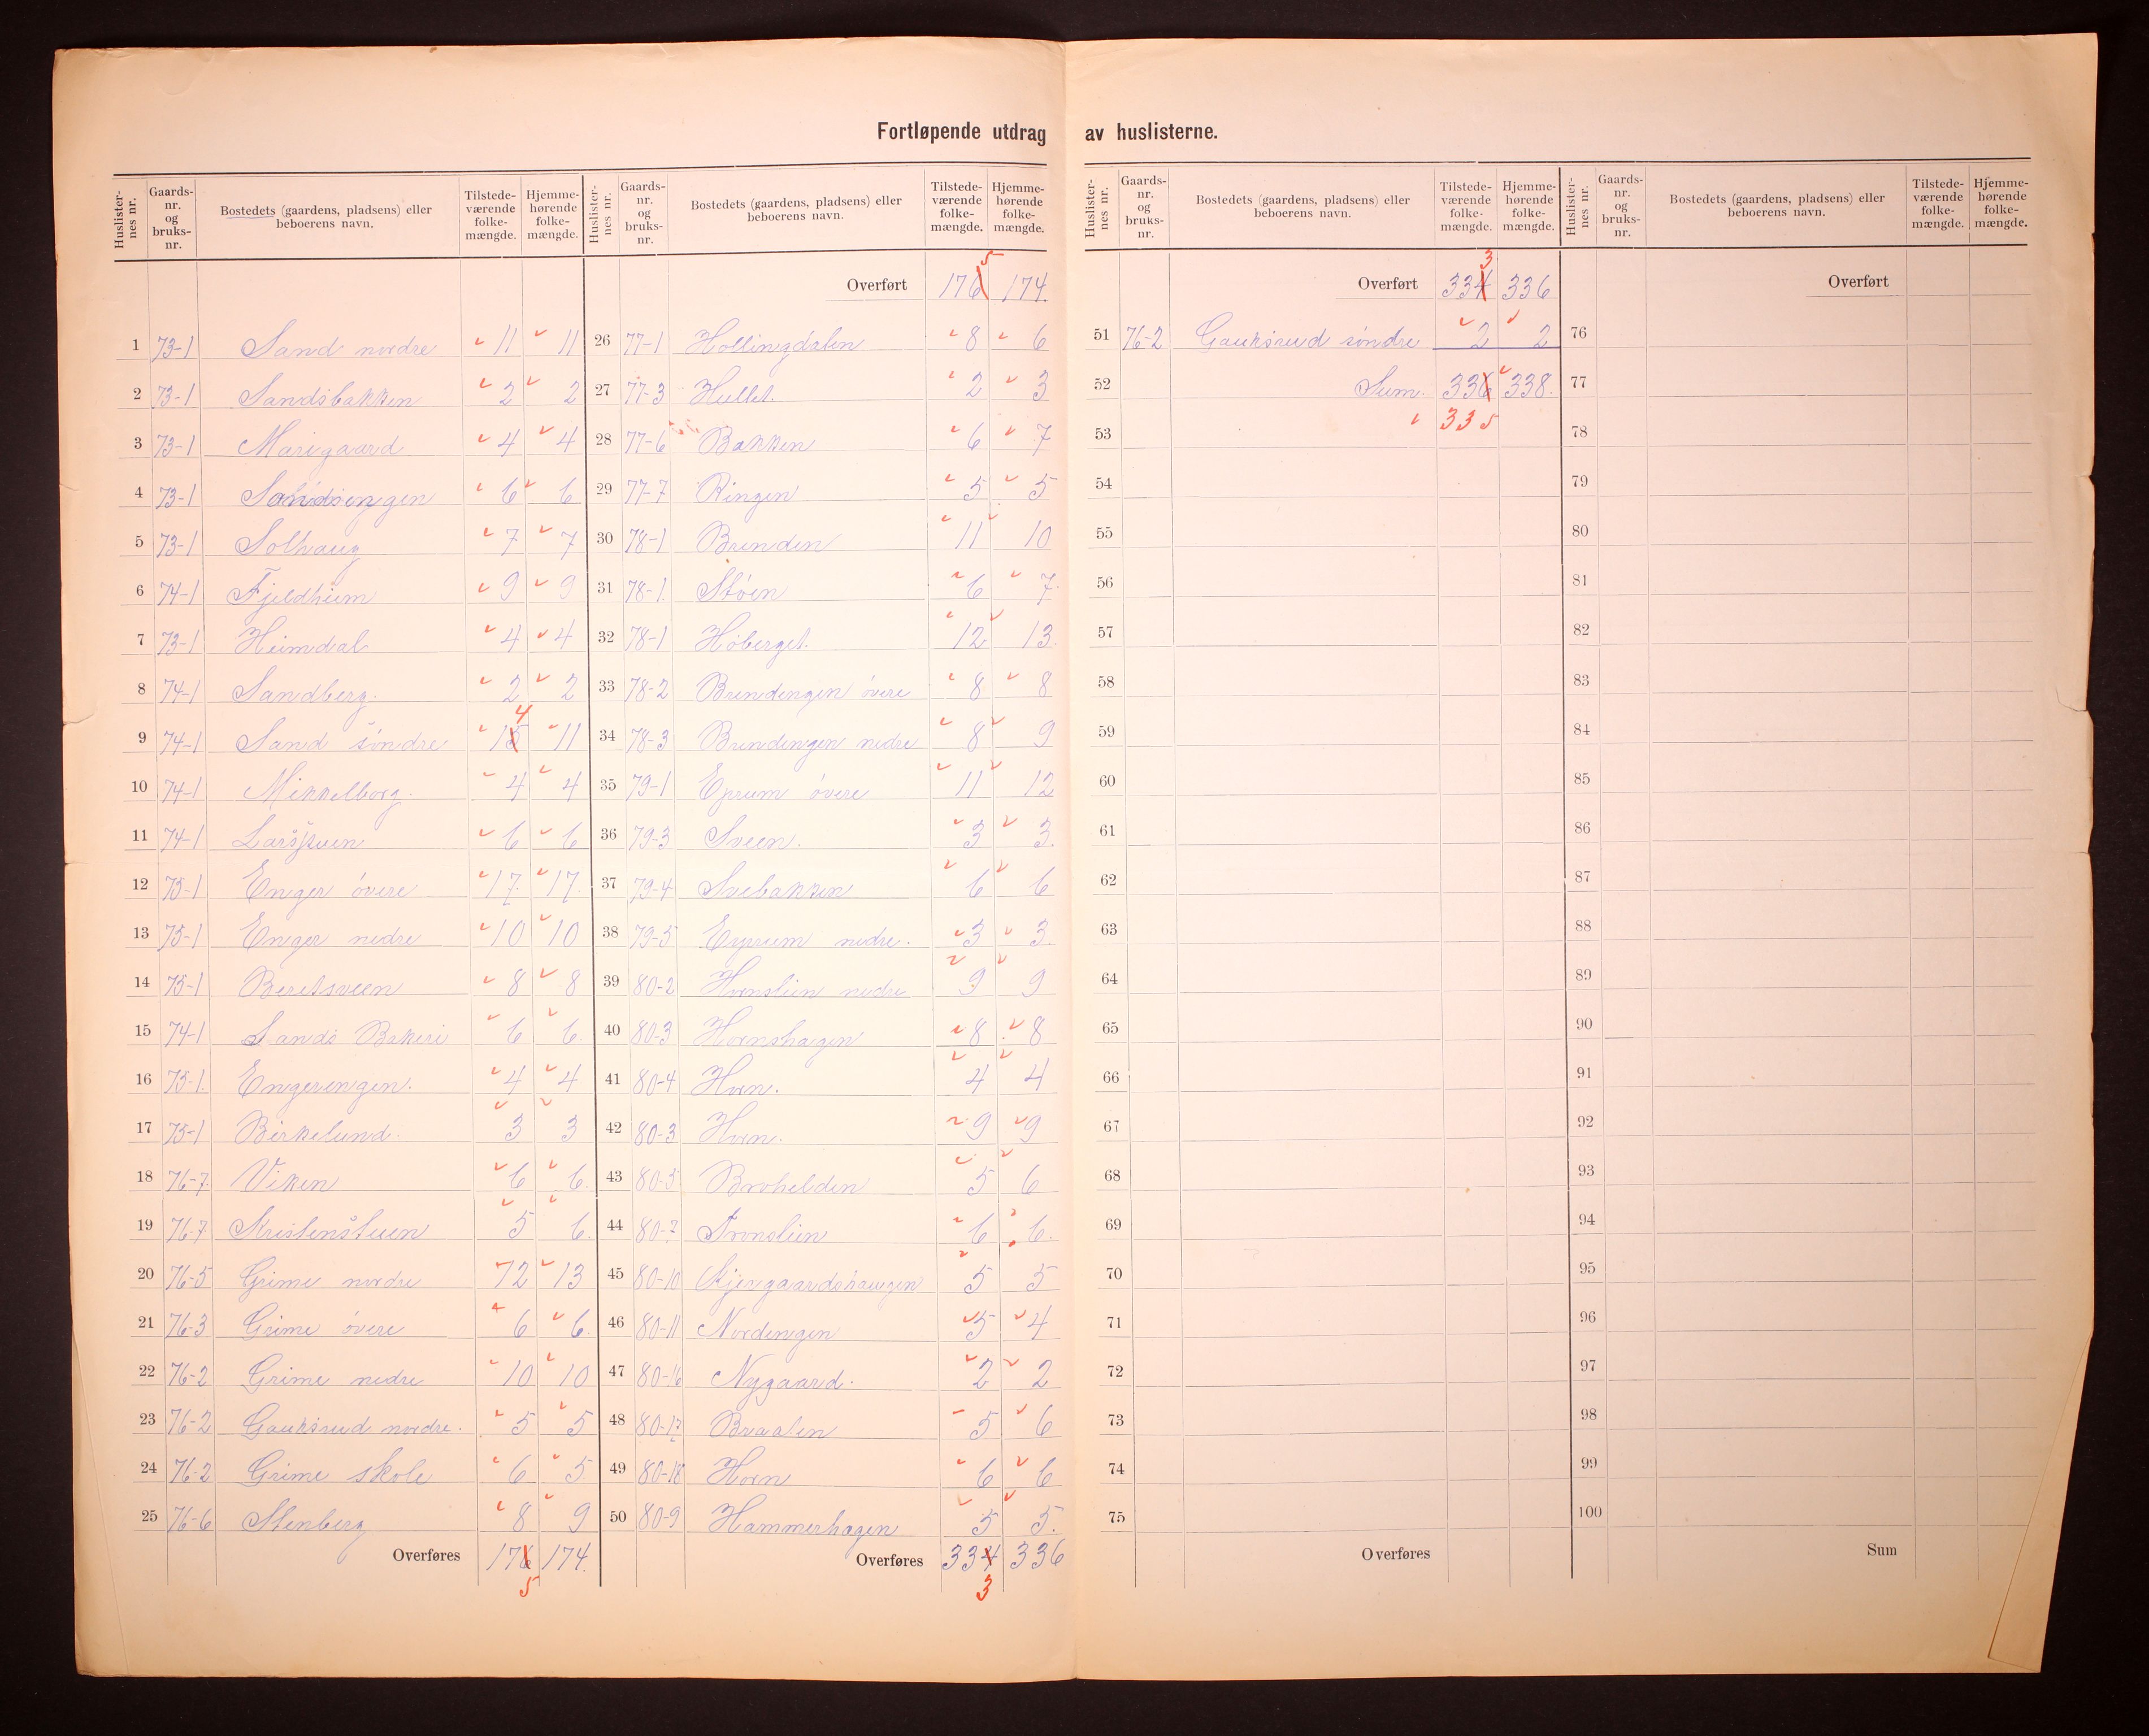 Fortløpende utdrag av huslisterne.
Huslisternes nr. Gaardsnr. og bruksnr. Bostedets (gaardens, pladsens) eller beboerens navn. Tilstedeværende folkemængde. Hjemmehørende folkemængde.
1 73-1 Sand nordre 11 11
2 73-1 Sandsbakken 2 2
3 73-1 Marigaard 4 4
4 73-1 Sandsengen 6 6
5 73-1 Solhaug 7 7
6 74-1 Fjeldheim 9 9
7 73-1 Heimdal 4 4
8 74-1 Sandberg. 2 2
9 74-1 Sand søndre 15 4 11
10 74-1 Mikkelborg. 4 4
11 74-1 6 6
12 75-1 Enger øvere 17. 17.
13 75-1 Enger nedre 10 10
14 75-1 Beretsveen 8 8
15 74-1 Sands Bakeri 6 6
16 75-1. Engerengen. 4 4
17 75-1 Birkelund. 3 3
18 76-7 Viken 6 6.
19 76-7 Kristenstuen 5 6.
20 76-5 Grime nordre 12 13
21 76-3 Grime øvere 6 6.
22 76-2 Grime nedre 10 10
23 76-2 Gauksrud nordre. 5 5
24 76-2 Grime skole 6 5
25 76-6 Stenberg 8 9
Overføres 176 174.
5
Huslisternes nr. Gaardsnr. og bruksnr. Bostedets (gaardens, pladsens) eller beboerens navn. Tilstedeværende folkemængde. Hjemmehørende folkemængde.
Overført 176 5 174.
26 77-1 Hollingdalen 8 6
27 77-3 Hullet. 2 3
28 77-6 Bakken 6 7
29 77-7 Ringen 5 5
30 78-1 Brenden 11 10
31 78-1. Støen 6 7
32 78-1 Høberget. 12 13.
33 78-2 Brendengen øvere 8 8
34 78-3 Brendengen nedre 8 9
35 79-1 øvere 11 12
36 79-3 Sveen. 3 3.
37 79-4 Svebakken 6 6
38 79-5 nedre. 3 3.
39 80-2 Hornslien nedre 9 9
40 80-3 Hornshagen 8 8
41 80-4 Horn. 4 4
42 80-3 Horn. 9 9
43 80-5 Brohelden 5 6
44 80-7 Tronslien 6 6.
45 80-10 Kjersgaardshaugen 5 5
46 80-11 Nordengen 5 4
47 80-16 Nygaard. 2 2
48 80-17 Braalen 5 6
49 80-18 Horn 6 6
50 80-9 Hammerhagen 5 5.
Overføres 334 336
3
Huslisternes nr. Gaardsnr. og bruksnr. Bostedets (gaardens, pladsens) eller beboerens navn. Tilstedeværende folkemængde. Hjemmehørende folkemængde.
Overført 334 3 336
51 76-2 Gauksrud søndre 2 2
52 Sum. 336 338.
53 335
54
55
56
57
58
59
60
61
62
63
64
65
66
67
68
69
70
71
72
73
74
75
Overføres
Huslisternes nr. Gaardsnr. og bruksnr. Bostedets (gaardens, pladsens) eller beboerens navn. Tilstedeværende folkemængde. Hjemmehørende folkemængde.
Overført
76
77
78
79
80
81
82
83
84
85
86
87
88
89
90
91
92
93
94
95
96
97
98
99
100
Sum